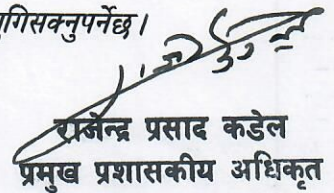 गिसक्नुपर्नेछ।
राजेन्द्र प्रसाद कडेल
प्रमुख प्रशासकीय अधिकृत